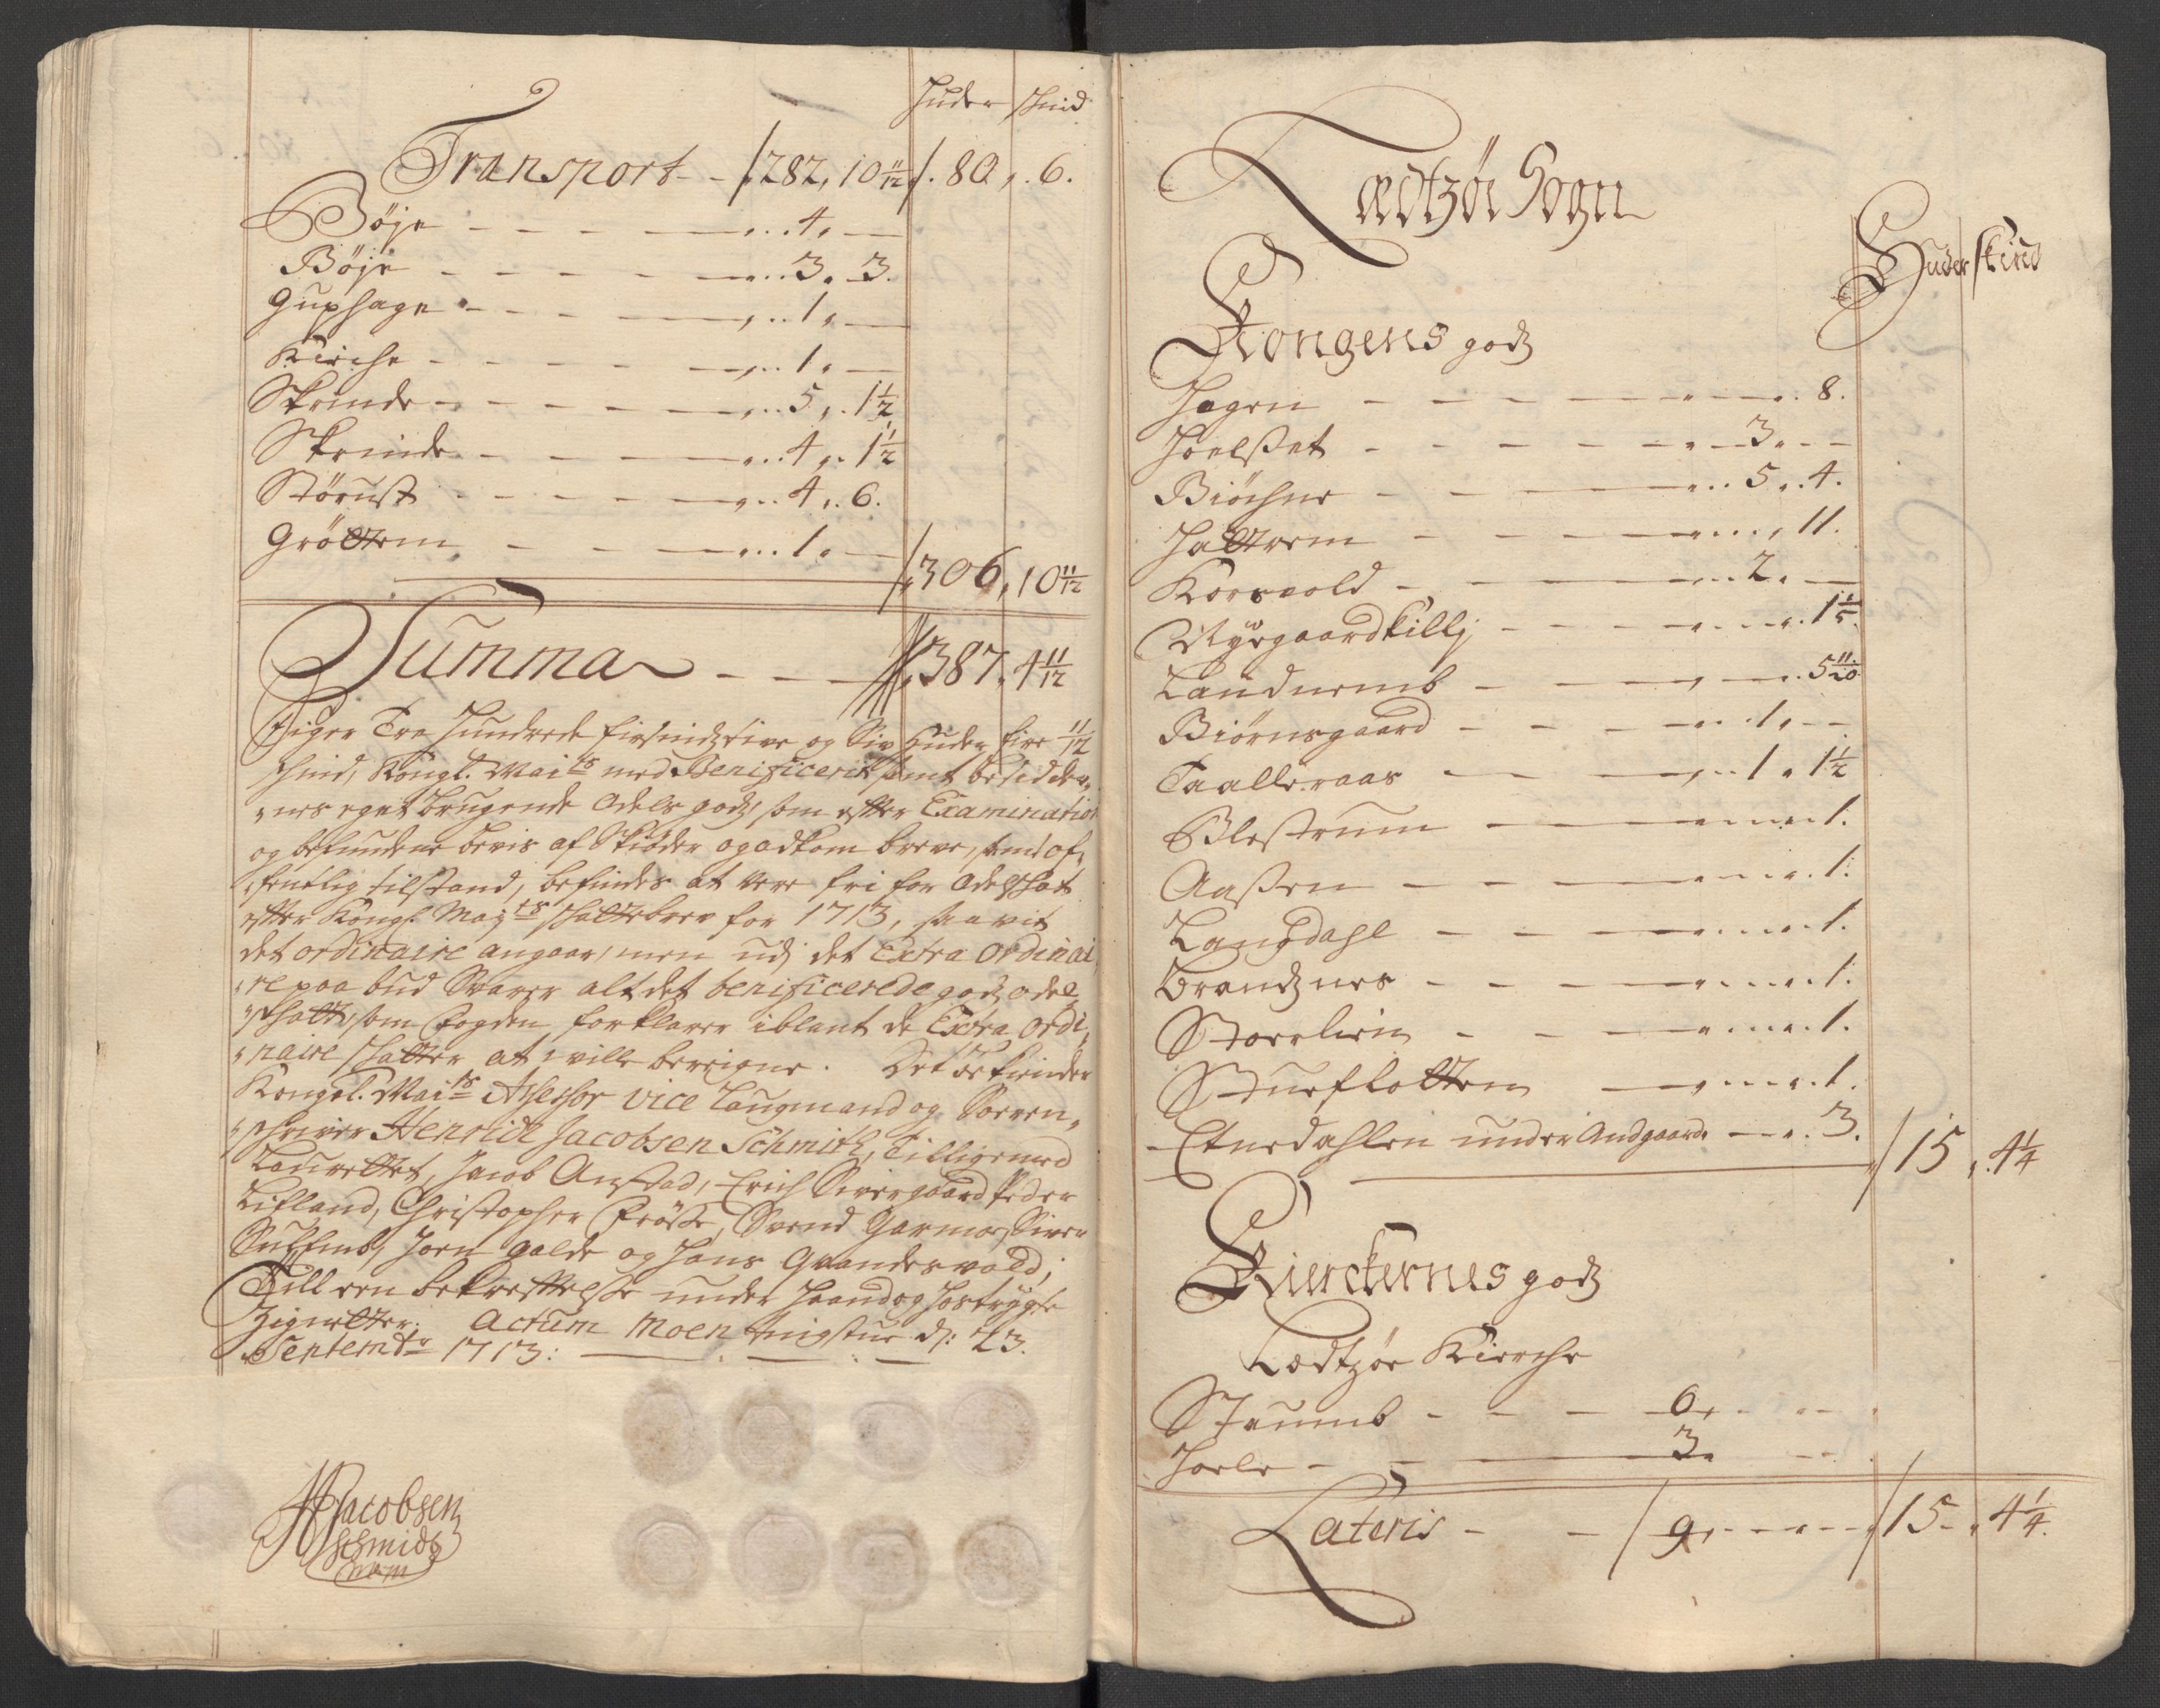 Huder skind
Transport - - /: 282, 10 11/12 /. 80 ,. 6.
Bøje - - - - 4, —
Böje - - - - 3. 3.
Guphage - - - - 1, —
Kirche - - - - 1. —
Skrinde - - - - 5,. 1 1/2
Skrinde - - - - 4,. 1 1/2
Störust - - - - 4,. 6.
Gröttem - - - - 1. —
/: 306, 10 11/12
Summa - - - 387, 4 11/12
Siger Tre Hundrede firsindztive og Siv Huder fire 11/12
skind, Kongl. Maits med Benificerit samt besidder,
nes eget brugende Odels godz, som efter Examination
og befundene bevis af Skiøder og adkom breve, samt of,
fentlig tilstand, befindes at vere fri for Odelskat
efter Kongl. Mayts skattebrev for 1713, saavit
det ordinaire angaar, men udj det Extra Ordinai,
re paa bud Svarer alt det benificerede godz odel,
skatt, som fogden forklarer iblant de Extra Ordi,
naire skatter at ville beregne. Det bekiender
Kongel. Maits Assessor vice Laugmand og Soren,
schriver Henrich Jacobsen Schmith, Tilligemed
Laurettet, Jacob Anstad, Erich Sivergaard Peder
Lifland, Christopher Fröise, Svend Garmoe, Siver
Sulhmb, Joen Galde og Hans Qvandesvold;
Till een bekreftelse under Haand og Hostrygte
Zignetter. Actum Moen tingstue d: 23.
Septembr 1713:
HJacobsen
Schmidt
Lædtzöe Sogn
Huder skind
Kongens godz
Hagen - - - - 8.
Hoelset - - - - 3. - -
Biöchne - - - - 5,. 4.
Hattrem - - - - 11.
Korsvold - - - - 2. —
Nyegaardkillj - - - - 1 1/5.
Landnemb - - - - 5 11/20
Biörnsgaard - - - - 1. - -
Taalleraas - - - - 1. 1 1/2
Blestrum - - - - 1.
Aasen - - - - 1.
Langdahl - - - - 1.
Brandznes - - - - 1.
Storelien - - - - 1.
Stueflotten - - - - 1.
Etnedahlen under Andgaard. - - 3. /15 ,. 4 1/4
Kierckernes godz
Lædtzöe Kierche
Staumb - - - 6,
Hoele - - - 3.
Lateris - - / 9, - - - /15. 4 1/4.